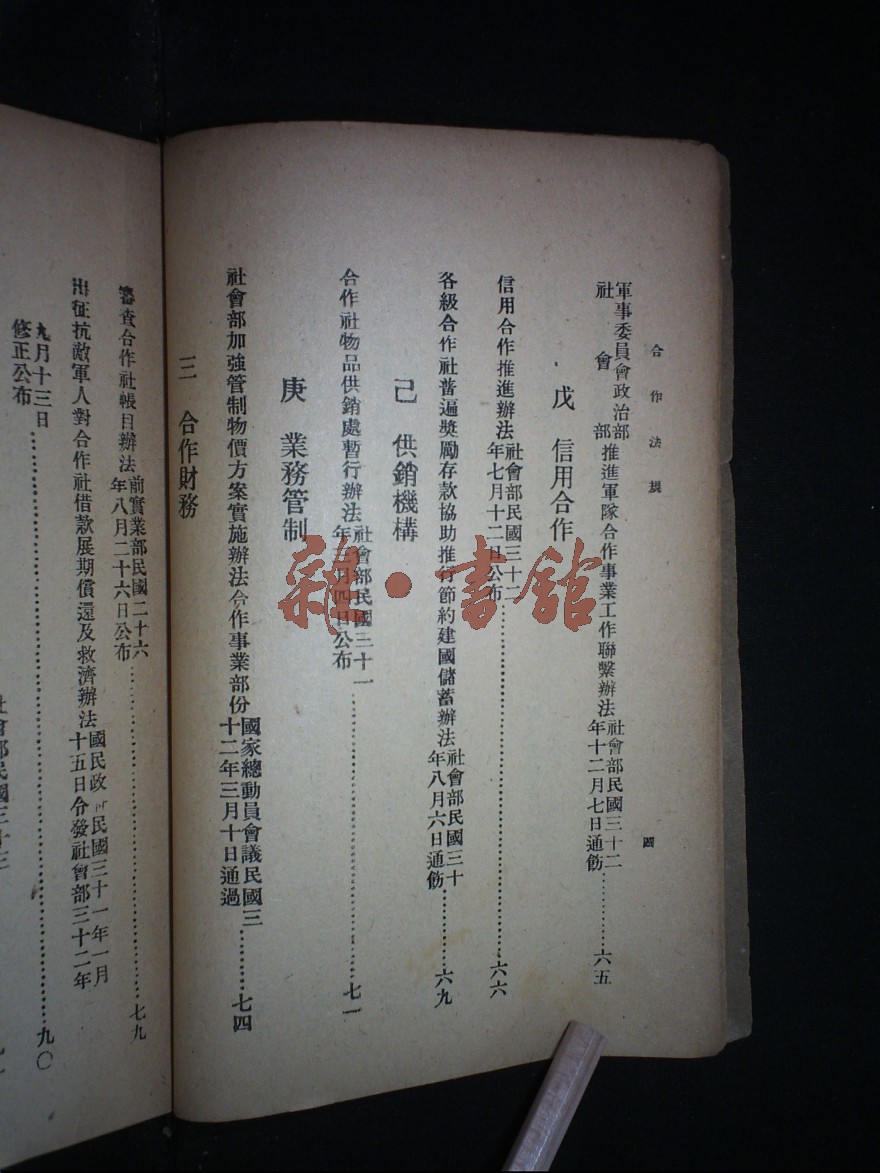 合作法規
四
軍事委員會政治部
社會部
推進軍隊合作事業工作聯繫辦法
社會部民國三十二
年十二月七日通飭…………六五
戊　信用合作
信用合作推進辦法
社會部民國三十二
年七月十二日公布…………六六
各級合作社普遍獎勵存款協助推行節約建國儲蓄辦法
社會部民國三十
年八月六日通飭…………六九
己　供銷機構
合作社物品供銷處暫行辦法
社會部民國三十一
年三月四日公布…………七一
庚　業務管制
社會部加強管制物價方案實施辦法合作事業部份
國家總動員會議民國三
十二年三月十日通過…………七四
三　合作財務
審查合作社帳目辦法
前實業部民國二十六
年八月二十六日公布…………七九
出征抗敵軍人對合作社借款展期償還及救濟辦法
國民政府民國三十一年一月
十五日令發社會部三十二年
九月十三日
修正公布…………九〇
社會部民國三十三
雜·書館